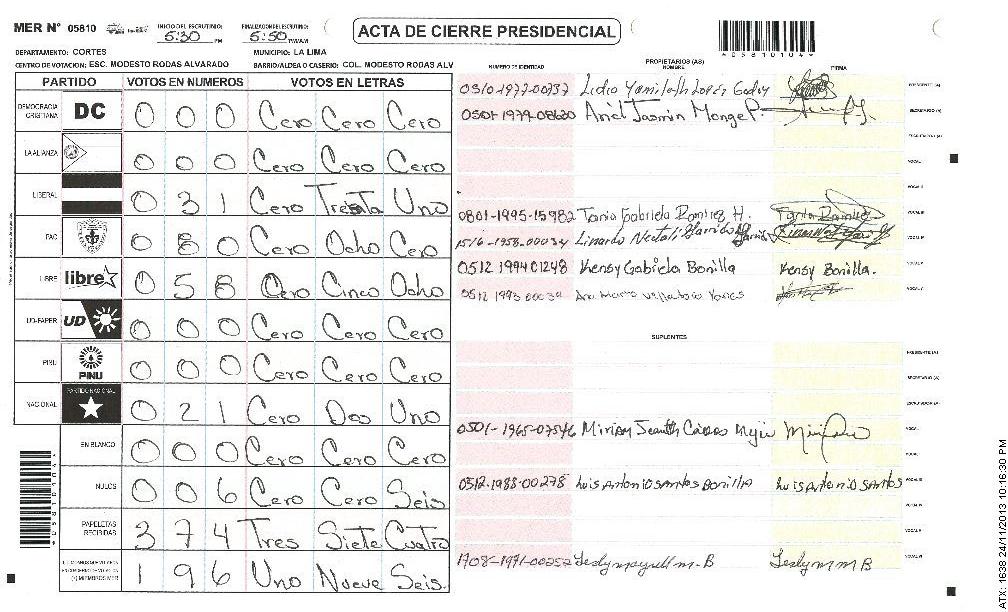 MER N° 05810
INICIO DEL ESCRUTINIO: 5:30 PM
FINALIZACION DEL ESCRUTINIO: 5:50 PM/AM
ACTA DE CIERRE PRESIDENCIAL
*05810104*
DEPARTAMENTO: CORTES
MUNICIPIO: LA LIMA
CENTRO DE VOTACION: ESC. MODESTO RODAS ALVARADO
BARRIO/ALDEA O CASERIO: COL. MODESTO RODAS ALV
PARTIDO VOTOS EN NUMEROS VOTOS EN LETRAS
DEMOCRACIA CRISTIANA DC 0 0 0 Cero Cero Cero
LA ALIANZA 0 0 0 Cero Cero Cero
LIBERAL 0 3 1 Cero Treinta Uno
PAC 0 8 0 Cero Ocho Cero
LIBRE libre 0 5 8 Cero Cinco Ocho
UD-FAPER UD 0 0 0 Cero Cero Cero
PINU PINU 0 0 0 Cero Cero Cero
NACIONAL PARTIDO NACIONAL 0 2 1 Cero Dos Uno
EN BLANCO 0 0 0 Cero Cero Cero
NULOS 0 0 6 Cero Cero Seis
PAPELETAS RECIBIDAS 3 7 4 Tres Siete Cuatro
(+) MIEMBROS MER 1 9 6 Uno Nueve Seis
PROPIETARIOS (AS)
NUMERO DE IDENTIDAD NOMBRE FIRMA
PRESIDENTE (A)
0501-1979-08620 Ariel Jasmin Monge P. SECRETARIO (A)
ESCRUTADOR (A)
VOCAL I
VOCAL II
0801-1995-15982 Tania Gabriela Ramirez H. Tania Ramirez VOCAL III
Linardo Nectali Garrido VOCAL IV
0512 199401248 Kensy Gabriela Bonilla Kensy Bonilla. VOCAL V
VOCAL
SUPLENTES
PRESIDENTE (A)
SECRETARIO (A)
ESCRUTADOR (A)
0501-1965-07546 Miriam VOCAL I
VOCAL
0512-1988-00278 Luis Antonio Santos Bonilla Luis Antonio Santos VOCAL III
VOCAL IV
VOCAL V
1708-1971-00252 Lesly m.B Lesly M M B VOCAL VI
*05810104*
ATX: 1638 24/11/2013 10:16:30 PM